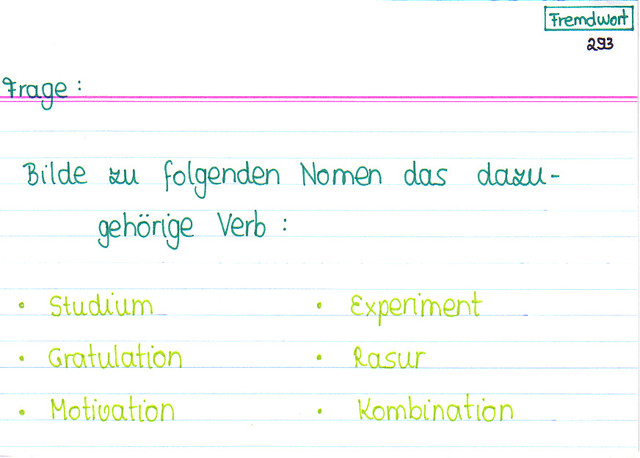 Fremdwort
293
Frage :
Bilde zu folgenden Nomen das dazu-
gehörige Verb :
• Studium • Experiment
• Gratulation • Rasur
• Motivation • Kombination